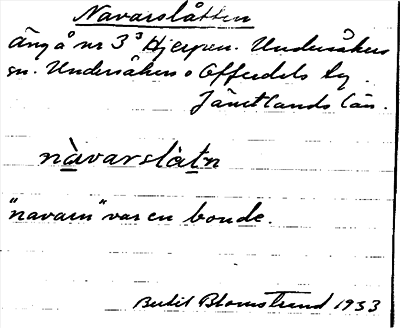 Navarslåtten
äng å nr 3³ Hjerpen. Undersåkers
sn. Undersåkers o Offerdals tg
Jämtlands län.
nàvarslàtn
"navarn" var en bonde.
Bertil Blomstrand 1933